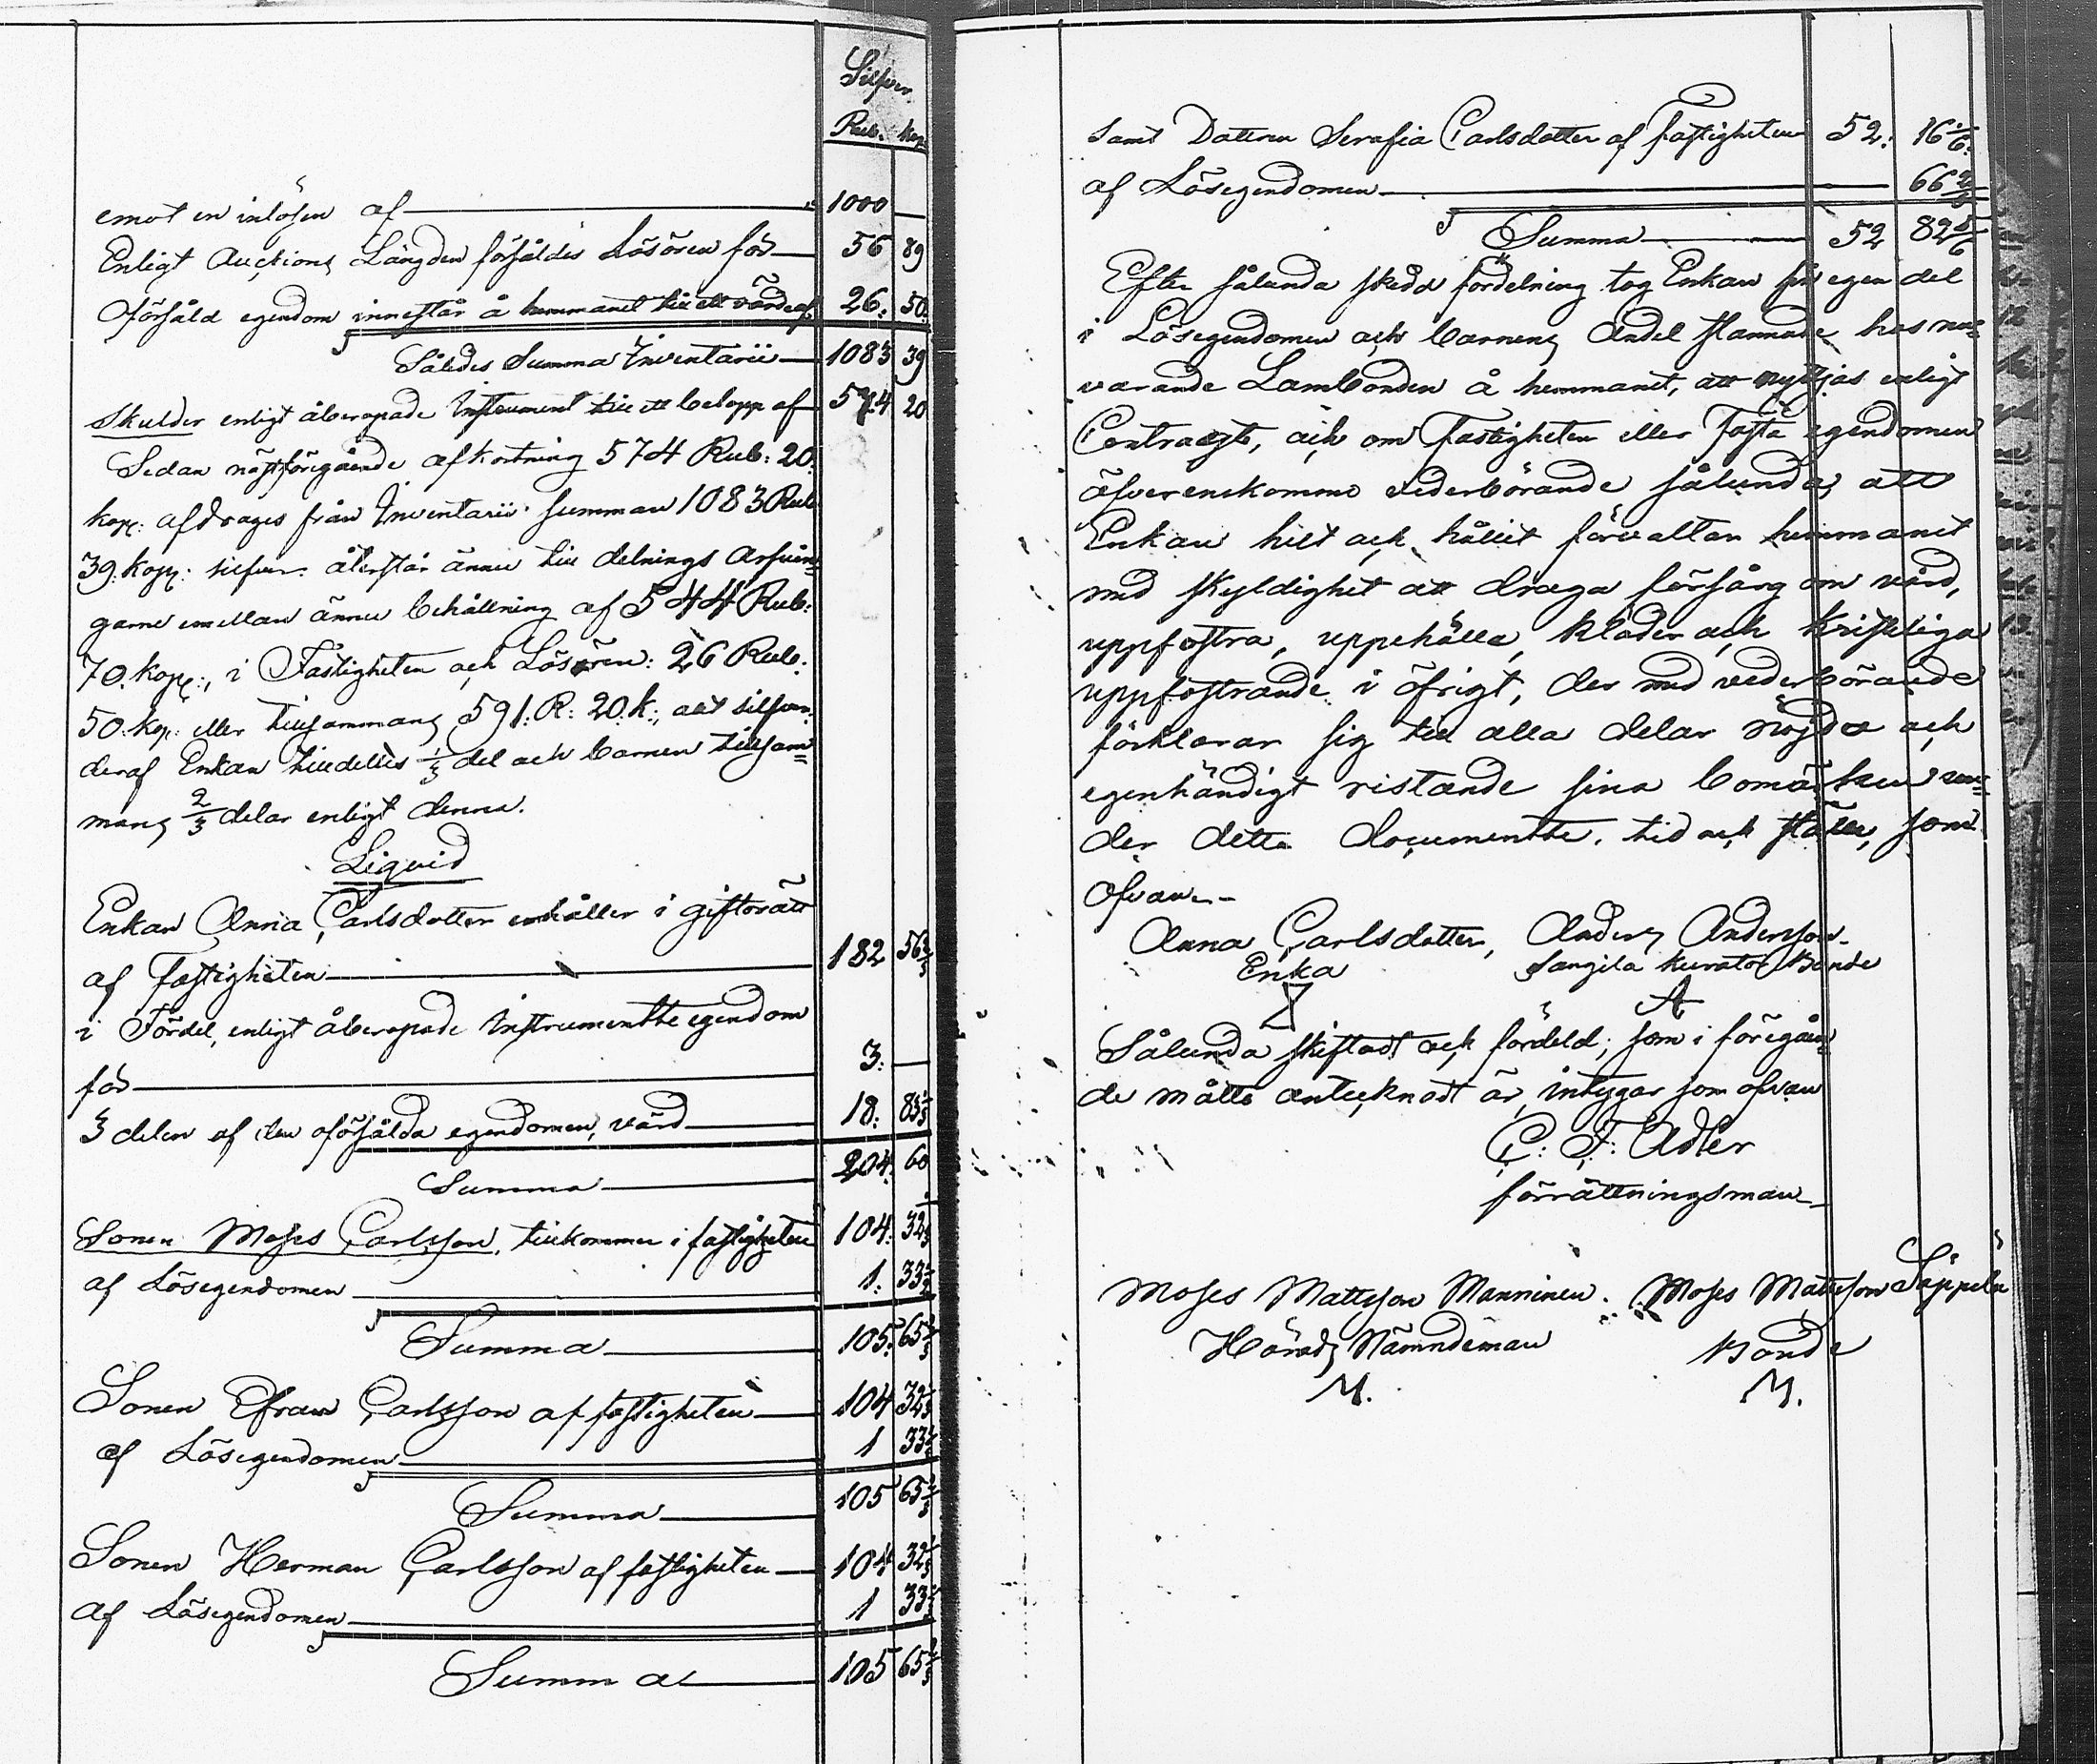 Silfver
Rub. kop
emot en inlösen af 1000 —
Enligt Auctions Längden försåldes Lösören för 56 89
Oförsåld egendom innestår å hemmanet till ett värde af 26. 50.
Således Summa Inventarii 1083 39
Skulder enligt åberopade Instrument till ett belopp af 574 20
Sedan nästföregående afkortning 574 Rub: 20.
kop: afdrages från Inventarii summan 1083 Rub
39. kop: silfver återstår ännu till delnings Arfvin=
garne emellan ännu behållning af 544 Rub:
70. kop:, i Fastigheten och Lösören: 26 Rub.
50. kop: eller tillsammans 591: R: 20. k:, allt silfver,
deraf Enkan tilldelles 1/3 del och barnen tillsam=
mans 2/3 delar enligt denna.
Liqvid
Enkan Anna Carlsdotter erhåller i giftorätt
af Fastigheten 182 56 2/3
i Fördel, enligt åberopade Instrumentte egendom
för 3. —
3 delen af den oförsålda egendomen, värd 18. 83 1/3
Summa 204. 60
Sonen Moses Carlsson, tillkommer i fastigheten 104. 32 1/3
af Lösegendomen 1. 33 1/3
Summa 105. 65 2/3
Sonen Efraim Carlsson af fastigheten 104 32 1/3
af Lösegendomen 1 33 1/3
Summa 105 65 2/3
Sonen Herman Carlsson af fastigheten 104 32 1/3
af Lösegendomen 1 33 1/3
Summa 105 65 2/3
samt Dottren Serafia Carlsdotter af fastigheten 52. 16 1/6.
af Lösegendomen 66 2/3
Summa 52 82 5/6
Efter sålunda skedd fördelning tog Enkan sin egen del
i Lösegendomen och barnens Andel stannade hos nu=
varande Lambonden å hemmanet, att nyttjas enligt
Contract, och om Fastigheten eller Fasta egendomen
öfverenskommo vederbörande sålunda, att
Enkan hilt och hållit förvaltar hemmanet
med skyldighet att draga försårg om vård,
uppfostra, uppehälla, kläder och kristeliga
uppfostrande i öfrigt, der med vederbörande
förklarar sig till alla delar nöjda och
egenhändigt ristande sina bomärken un=
der detta documentte, tid och ställe, som
Ofvan.
Anna Carlsdotter, Anders Andersson
Enka Sangila kurator Bonde
A
Sålunda skiftadt och fördeld, som i föregåen=
de måtte antecknadt är, intygar som ofvan
C: F: Adler
förrättningsman
Moses Mattsson Manninen. Moses Mattsson Säppälä
Härads Nämndeman Bonde
M. M.